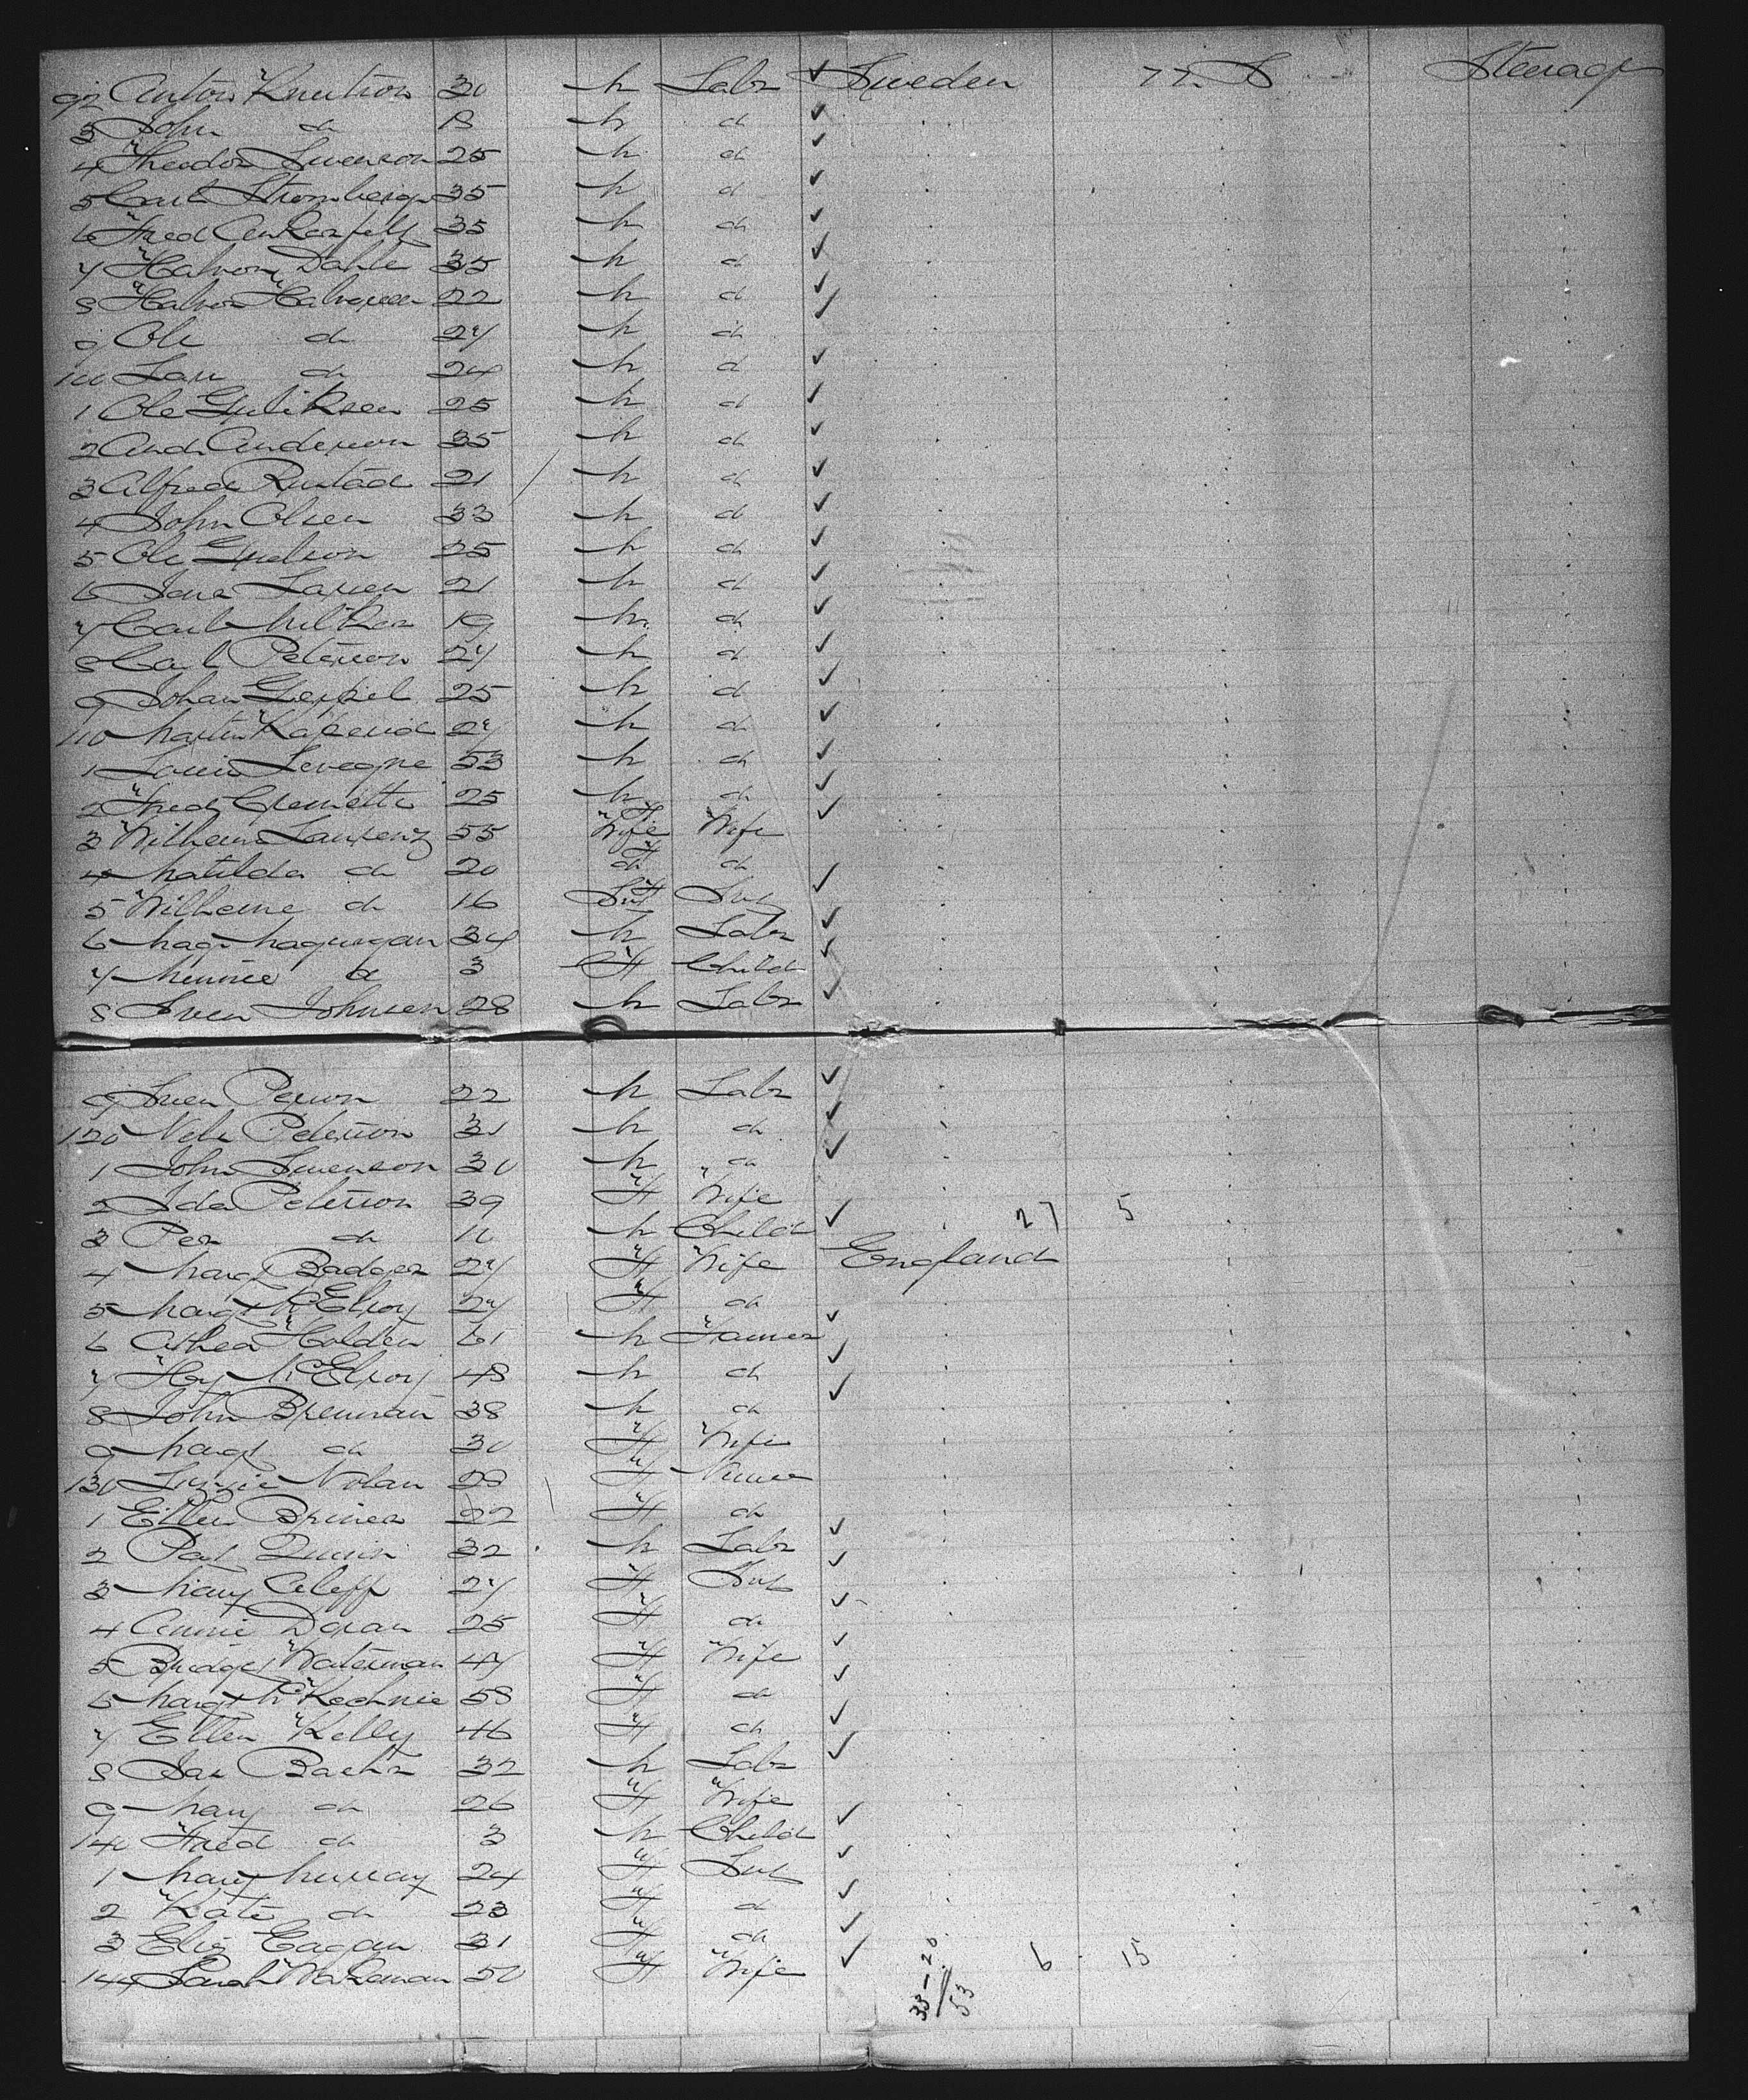 92 Anton Knutson 30 M Labr ✓ Sweden U.S. Steerage
3 John do 18 M do ✓
4 Theodor Swenson 25 M do ✓
5 Carl Stromberg 35 M do ✓
6 Fred 35 M do ✓
7 Halvor Dahle 35 M do ✓
8 Halvor Halvorsen 22 M do ✓
9 Ole do 27 M do
100 Lars do 24 M do ✓
1 Ole Guliksen 25 M do ✓
2 And Anderson 35 M do ✓
3 Alfred Rustad 21 M do ✓
4 John Olsen 33 M do ✓
5 Ole 25 M do ✓
6 Larsen 21 M do ✓
7 Carl 19 M do ✓
8 Carl Peterson 27 M do ✓
9 Johan 25 M do ✓
110 Martin 27 M do ✓
1 Louis 53 M do ✓
2 Fred 25 M do ✓
3 Wilhelm 55 Wife Wife ✓
4 Matilda do 20 do do
5 Wilhelmine do 16 F ✓
6 34 M Labr ✓
7 Minnie do 3 F Child ✓
8 Sven Johnsen 28 M Labr ✓
9 Sven Person 22 M Labr ✓
120 Nels Peterson 31 M do ✓
1 John Swenson 30 M do ✓
2 Ida Peterson 39 F Wife
3 Per do 10 M Child ✓ 27 5
4 Margt Badger 27 F Wife England
5 Margt McElroy 27 F do
6 Holden 61 M Farmer ✓
7 Hy McElroy 48 M do ✓
8 John Brennan 38 M do ✓
9 Margt do 30 F Wife
130 Lizzie Nolan 28 F Nurse
1 Ellen 22 F do
2 Pat Quinn 32 M Labr ✓
3 Mary 27 F ✓
4 Annie Doran 25 F do ✓
5 Bridget Waterman 47 F Wife ✓
6 Margt McKechnie 58 F do ✓
7 Ellen Kelly 46 F do ✓
8 32 M Labr ✓
9 Mary do 26 F Wife
140 Fred do 3 M Child ✓
1 Mary Murray 24 F ✓
2 Kate do 23 F do ✓
3 Eliz Eagan 31 F do ✓
144 Sarah 50 F Wife ✓ 6 15
33-20
/53